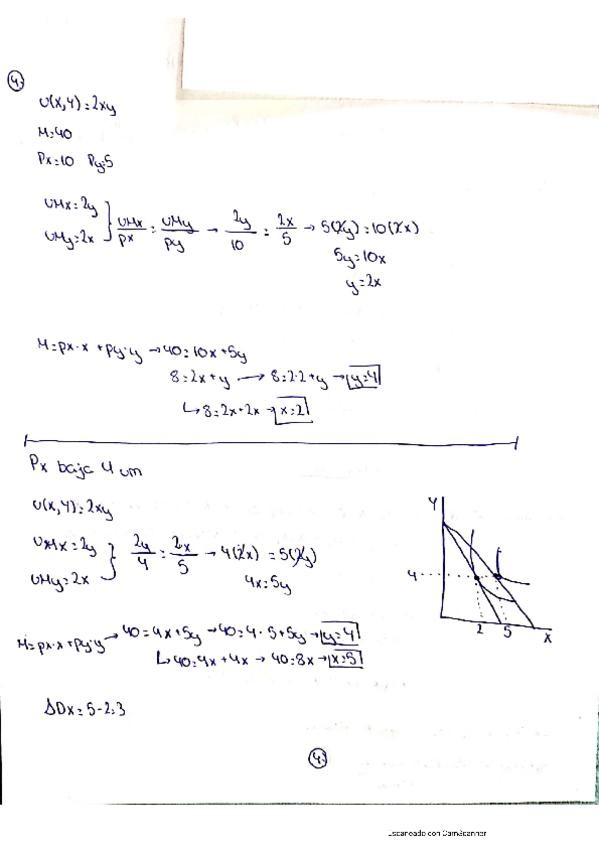 4.
U(x,y)=2xy
M=40
Px=10 Py=5
UMx=2y
UMy=2x } UMx/px = UMy/py → 2y/10 = 2x/5 → 5(2y)=10(2x)
5y=10x
y=2x
M=px·x+py·y → 40=10x+5y
8=2x+y → 8=2·2+y → y=4
↳ 8=2x+2x → x=2
Px baja 4 um
U(x,y)=2xy
UMx=2y
UMy=2x } 2y/4 = 2x/5 → 4(2x)=5(2y)
4x=5y
M=px·x+py·y → 40=4x+5y → 40=4·5+5y → y=4
↳ 40=4x+4x → 40=8x → x=5
Y
4
2 5 X
ΔDx=5-2=3
4.
Escaneado con CamScanner